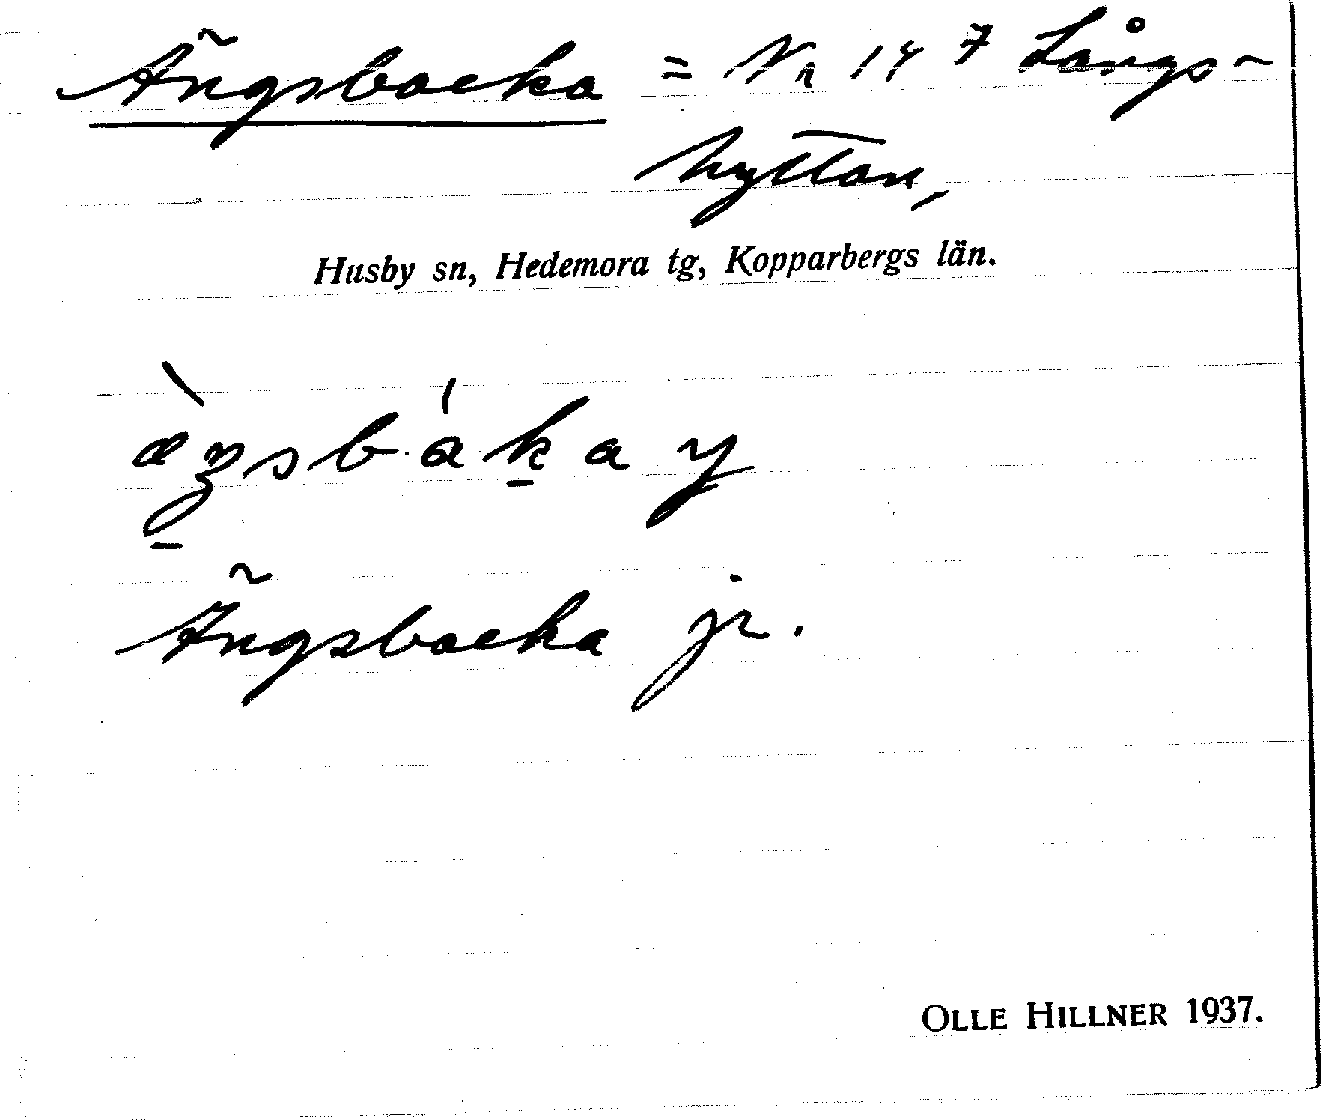 Ängsbacka = Nr 14 7 Långs-
hyttan,
Husby sn, Hedemora tg, Kopparbergs län.
Ängsbacka jr.
OLLE HILLNER 1937.